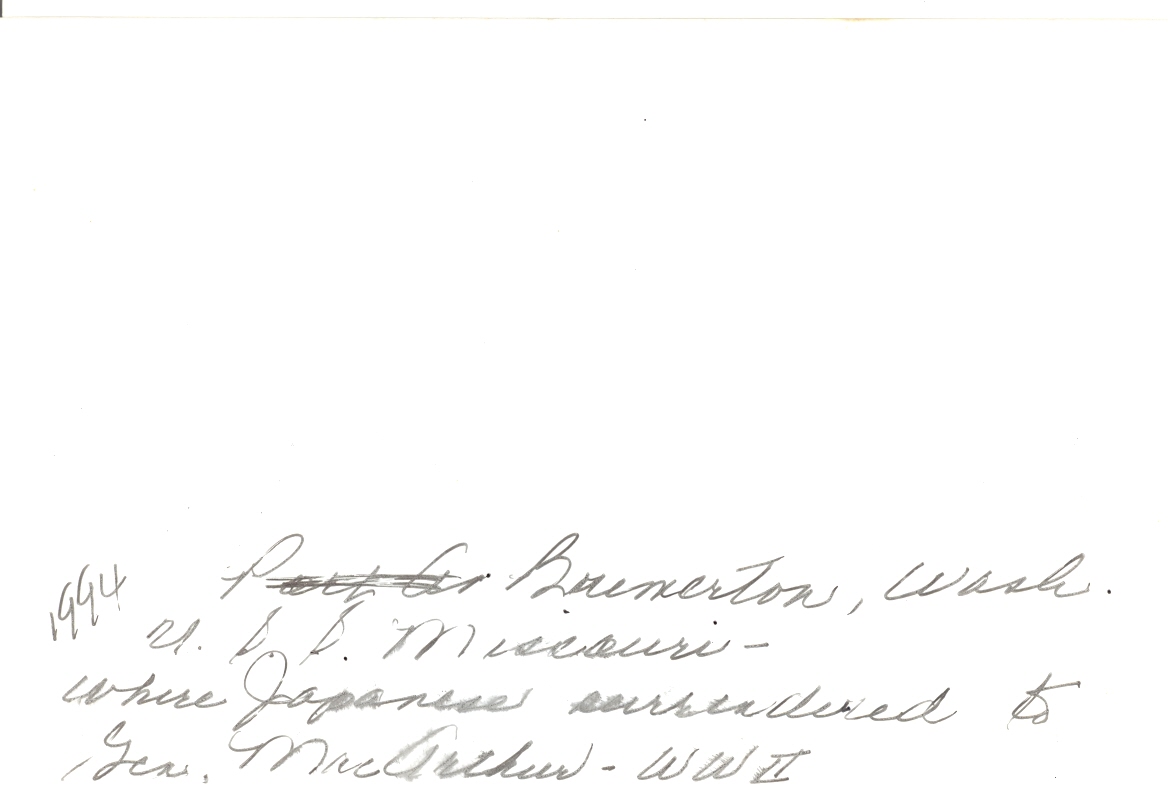 1994
Bremerton, Wash.
U. S. S. Missouri -
where Japanese surrendered to
Gen. MacArthur - WW II